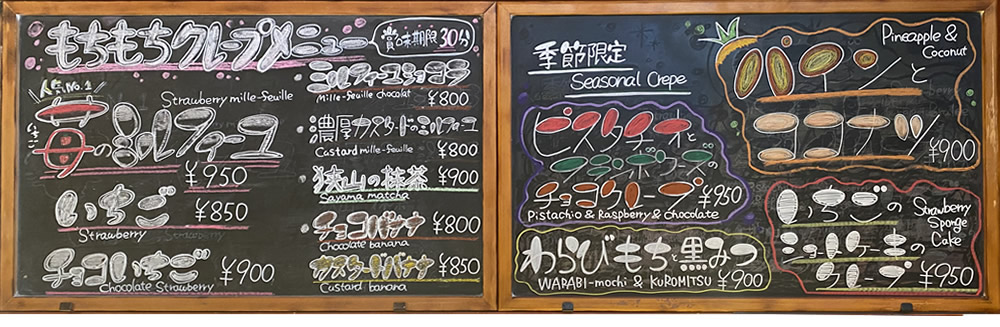 もちもちクレープメニュー
賞味期限30分
人気No.1
Strawberry mille-feuille
苺のミルフィーユ
いちご
¥950
いちご ¥850
Strawberry
チョコいちご ¥900
Chocolate Strawberry
ミルフィーユショコラ
Mille-feuille chocolat ¥800
濃厚カスタードのミルフィーユ
Custard mille-feuille ¥800
狭山の抹茶 ¥900
Sayama matcha
チョコバナナ ¥800
Chocolate banana
カスタードバナナ ¥850
Custard banana
季節限定
Seasonal Crepe
ピスタチオと
フランボワーズの
チョコクレープ ¥950
Pistachio & Raspberry & chocolate
わらびもちと黒みつ
WARABI-mochi & KUROMITSU ¥900
Pineapple &
Coconut
パインと
ココナッツ
¥900
いちごの
ショートケーキの
クレープ
Strawberry
Sponge
Cake
¥950